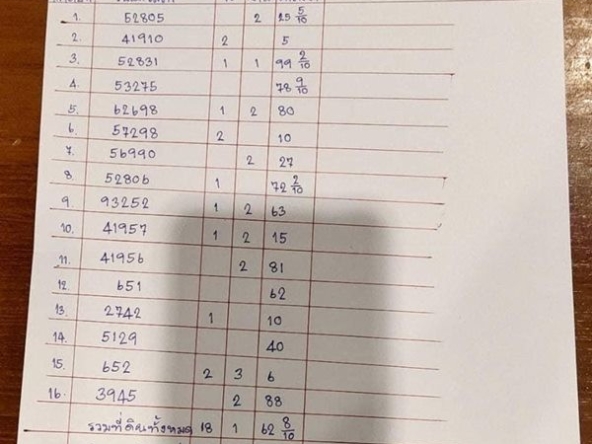 1. 52805 2 25 5/10
2. 41910 2 5
3. 52831 1 1 99 2/10
4. 53275 78 9/10
5. 62698 1 2 80
6. 57298 2 10
7. 56990 2 27
8. 52806 1 72 2/10
9. 93252 1 2 63
10. 41957 1 2 15
11. 41956 2 81
12. 651 62
13. 2742 1 10
14. 5129 40
15. 652 2 3 6
16. 3945 2 88
รวมที่ดินทั้งหมด 18 1 62 8/10